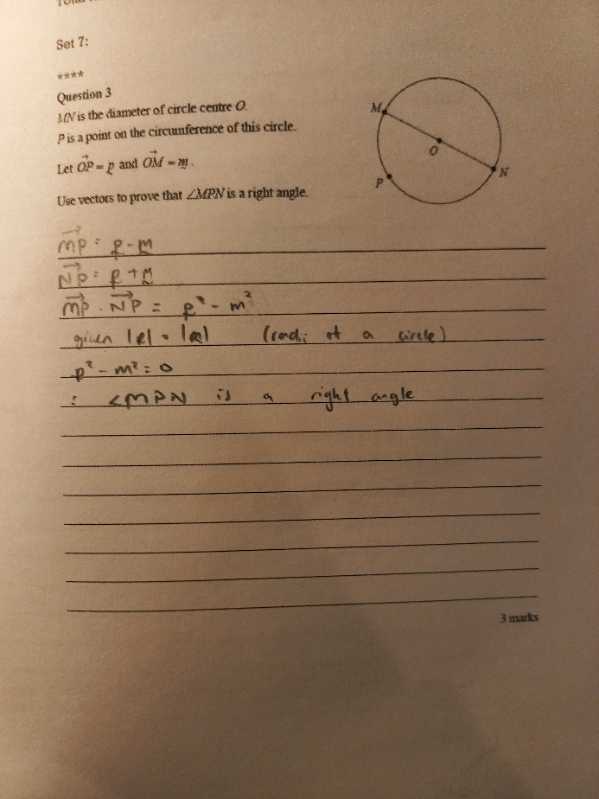 Set 7:
****
Question 3
MN is the diameter of circle centre O.
P is a point on the circumference of this circle.
Let OP⃗ = p and OM⃗ = m.
Use vectors to prove that ∠MPN is a right angle.
M
O
N
P
MP⃗ = p - m
NP⃗ = p + m
MP⃗ . NP⃗ = p² - m²
given |p| = |m| (radii of a circle)
p² - m² = 0
∴ ∠MPN is a right angle
3 marks